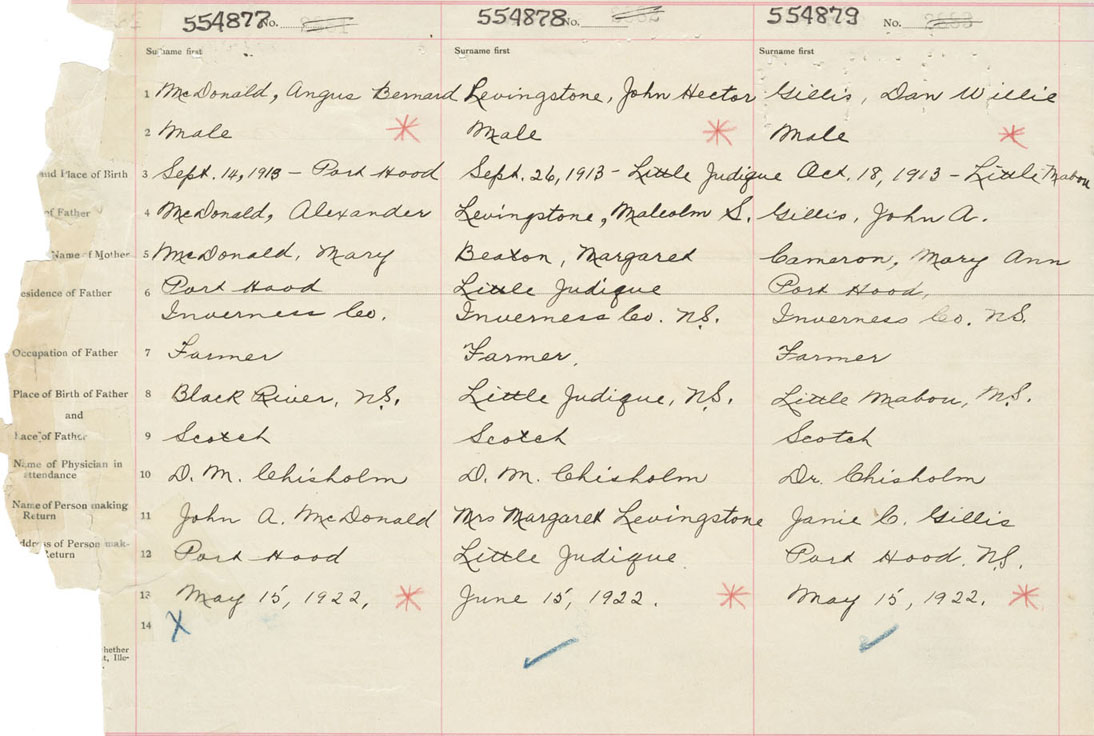 554877 No.
554878 No.
554879 No.
Surname first
Surname first
Surname first
1 McDonald, Angus Bernard
Levingstone, John Hector
Gillis, Dan Willie
2 Male
Male
Male
and Place of Birth 3 Sept. 14, 1913 - Port Hood
Sept. 26, 1913 - Little Judique
Oct. 18, 1913 - Little Mabou
of Father 4 McDonald, Alexander
Levingstone, Malcolm S.
Gillis, John A.
Name of Mother 5 McDonald, Mary
Beaton, Margaret
Cameron, Mary Ann
esidence of Father 6 Port Hood
Inverness Co.
Little Judique
Inverness Co. N.S.
Port Hood,
Inverness Co. N.S.
Occupation of Father 7 Farmer
Farmer.
Farmer
Place of Birth of Father 8 Black River, N.S.
Little Judique, N.S.
Little Mabou, N.S.
and
Race of Father 9 Scotch
Scotch
Scotch
Name of Physician in
attendance 10 D. M. Chisholm
D. M. Chisholm
Dr. Chisholm
Name of Person making
Return 11 John A. McDonald
Mrs Margaret Levingstone
Janie C. Gillis
ddress of Person mak-
Return 12 Port Hood
Little Judique
Port Hood. N.S.
13 May 15, 1922.
June 15, 1922.
May 15, 1922.
14 X
hether
t, Ille-